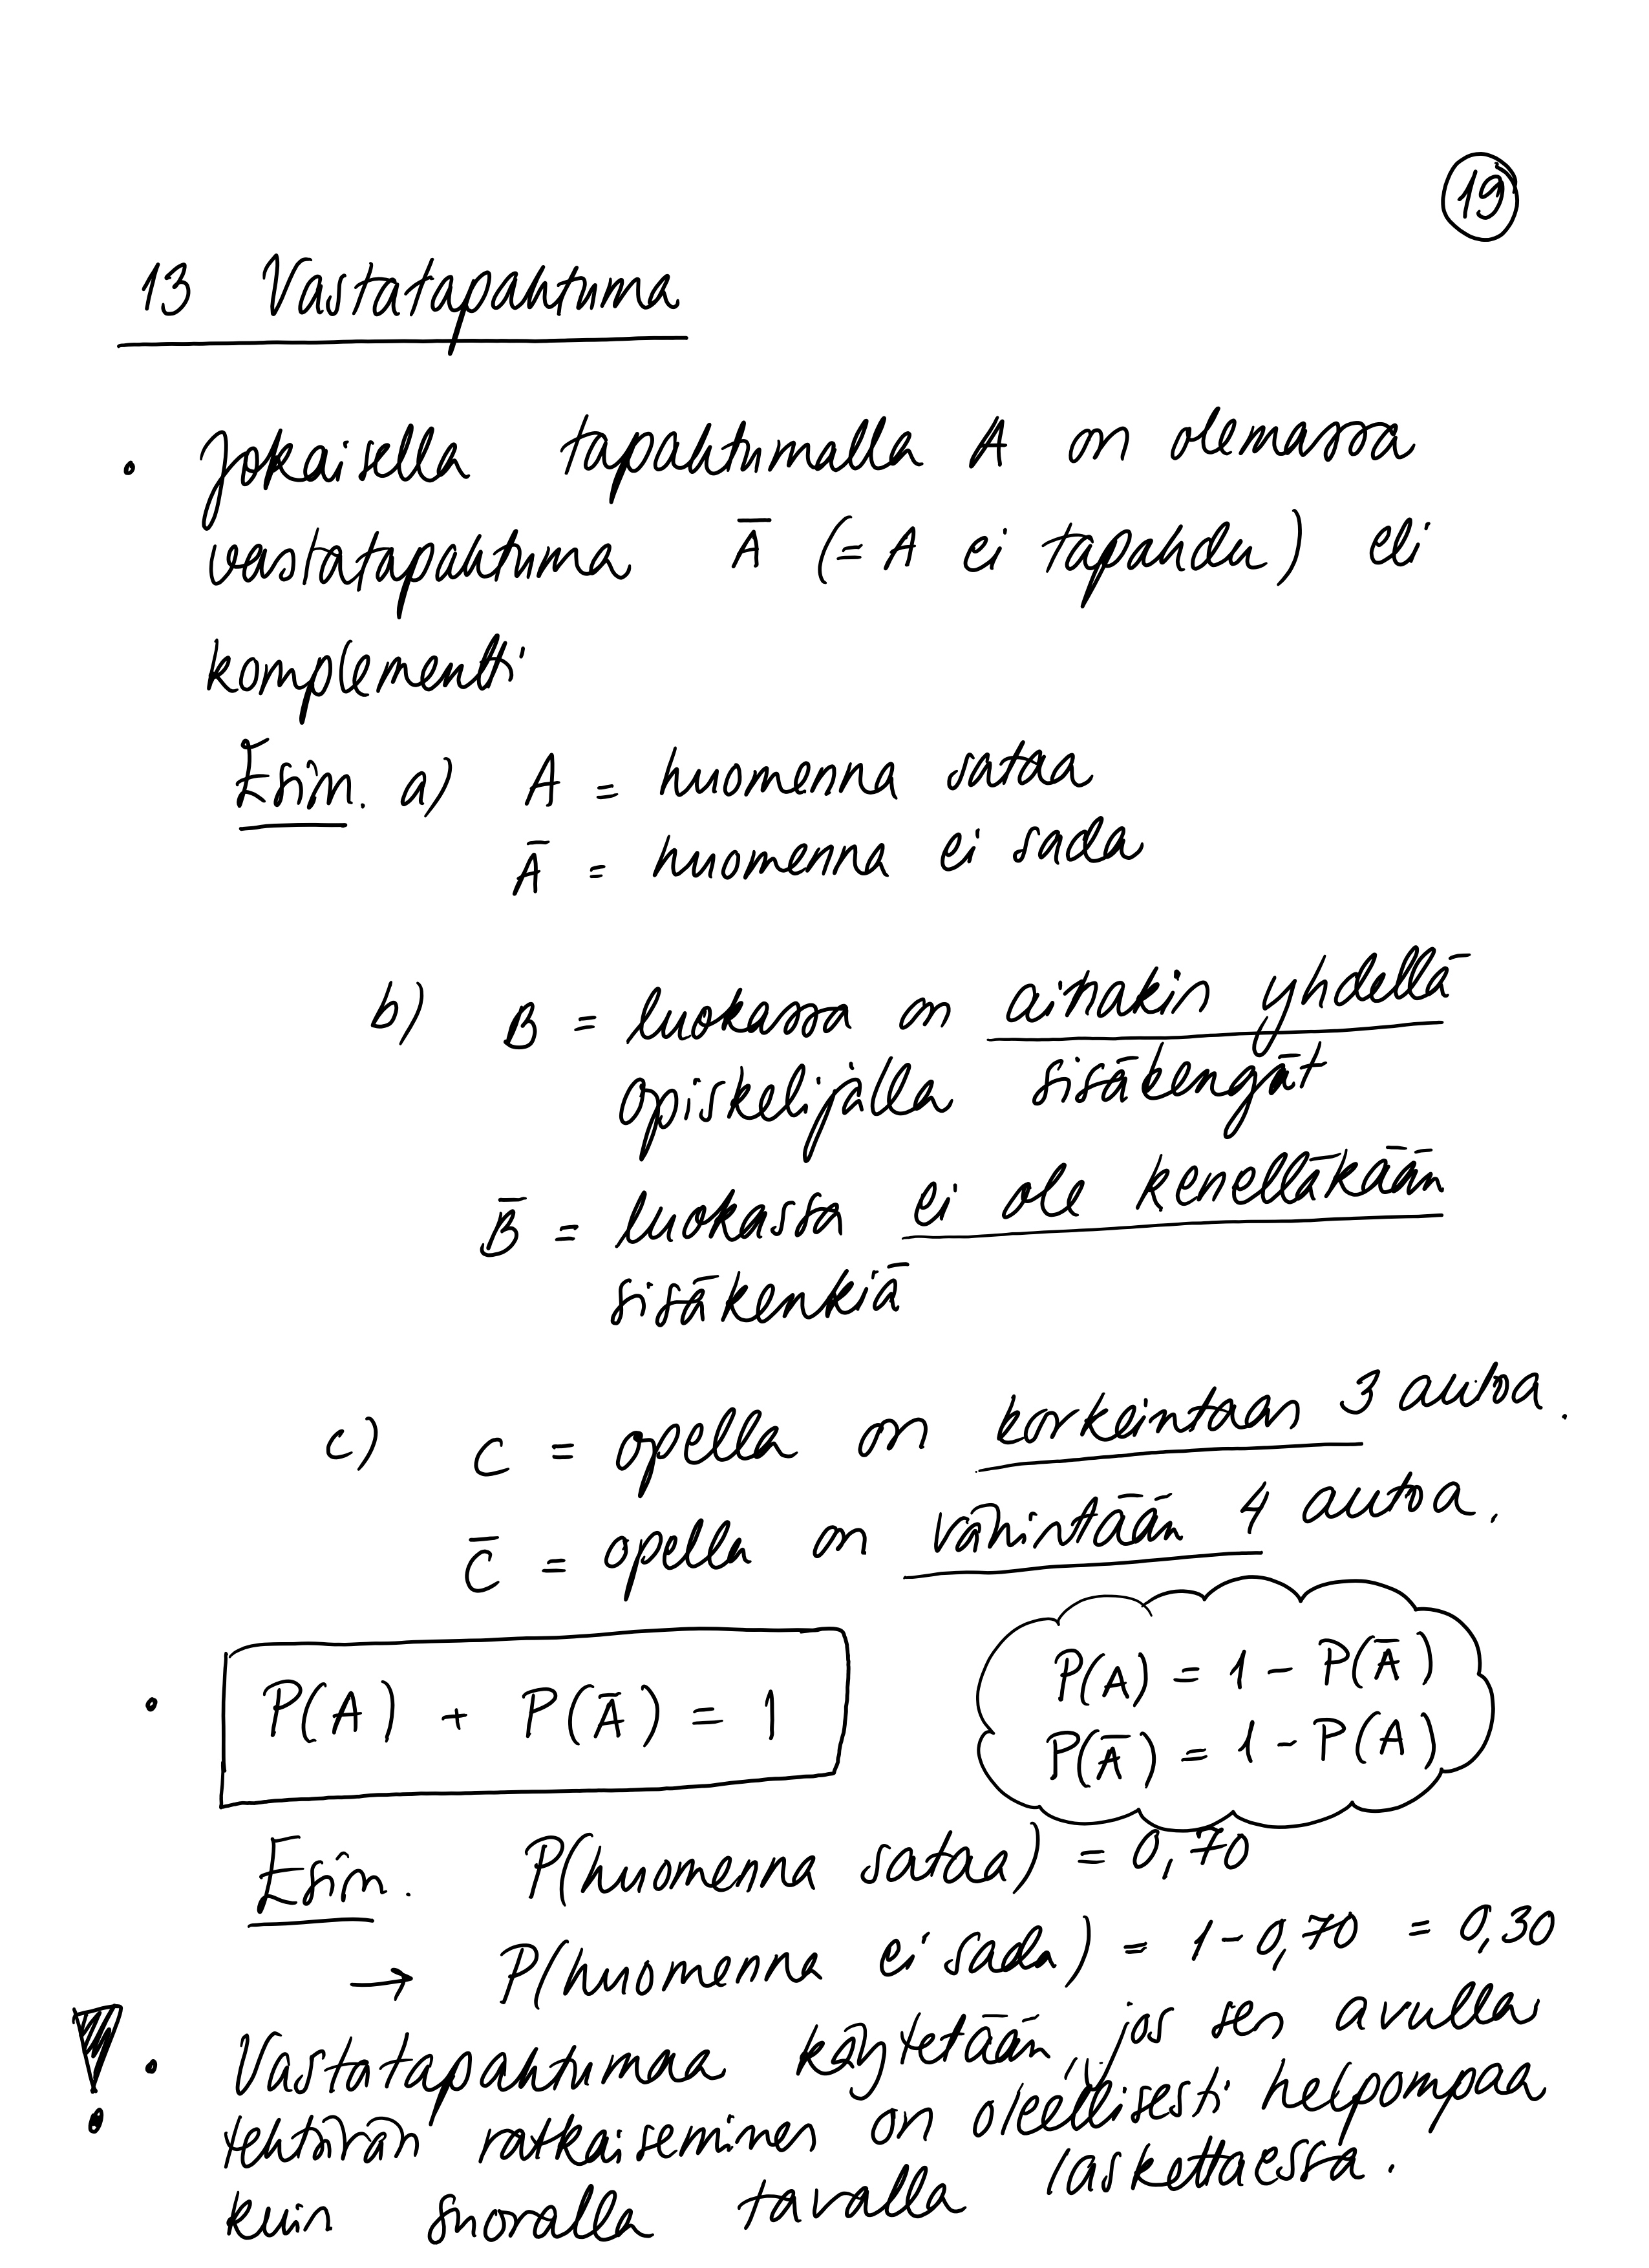 19
13 Vastatapahtuma
• Jokaisella tapahtumalla A on olemassa
vastatapahtuma Ā (= A ei tapahdu) eli
komplementti
Esim. a) A = huomenna sataa
Ā = huomenna ei sada
b) B = luokassa on ainakin yhdellä
opiskelijalla sisäkengät
B̄ = luokassa ei ole kenelläkään
sisäkenkiä
c) C = opella on korkeintaan 3 autoa.
C̄ = opella on vähintään 4 autoa.
• P(A) + P(Ā) = 1
P(A) = 1 - P(Ā)
P(Ā) = 1 - P(A)
Esim. P(huomenna sataa) = 0,70
→ P(huomenna ei sada) = 1 - 0,70 = 0,30
! • Vastatapahtumaa käytetään, jos sen avulla
tehtävän ratkaiseminen on oleellisesti helpompaa
kuin suoralla tavalla laskettaessa.